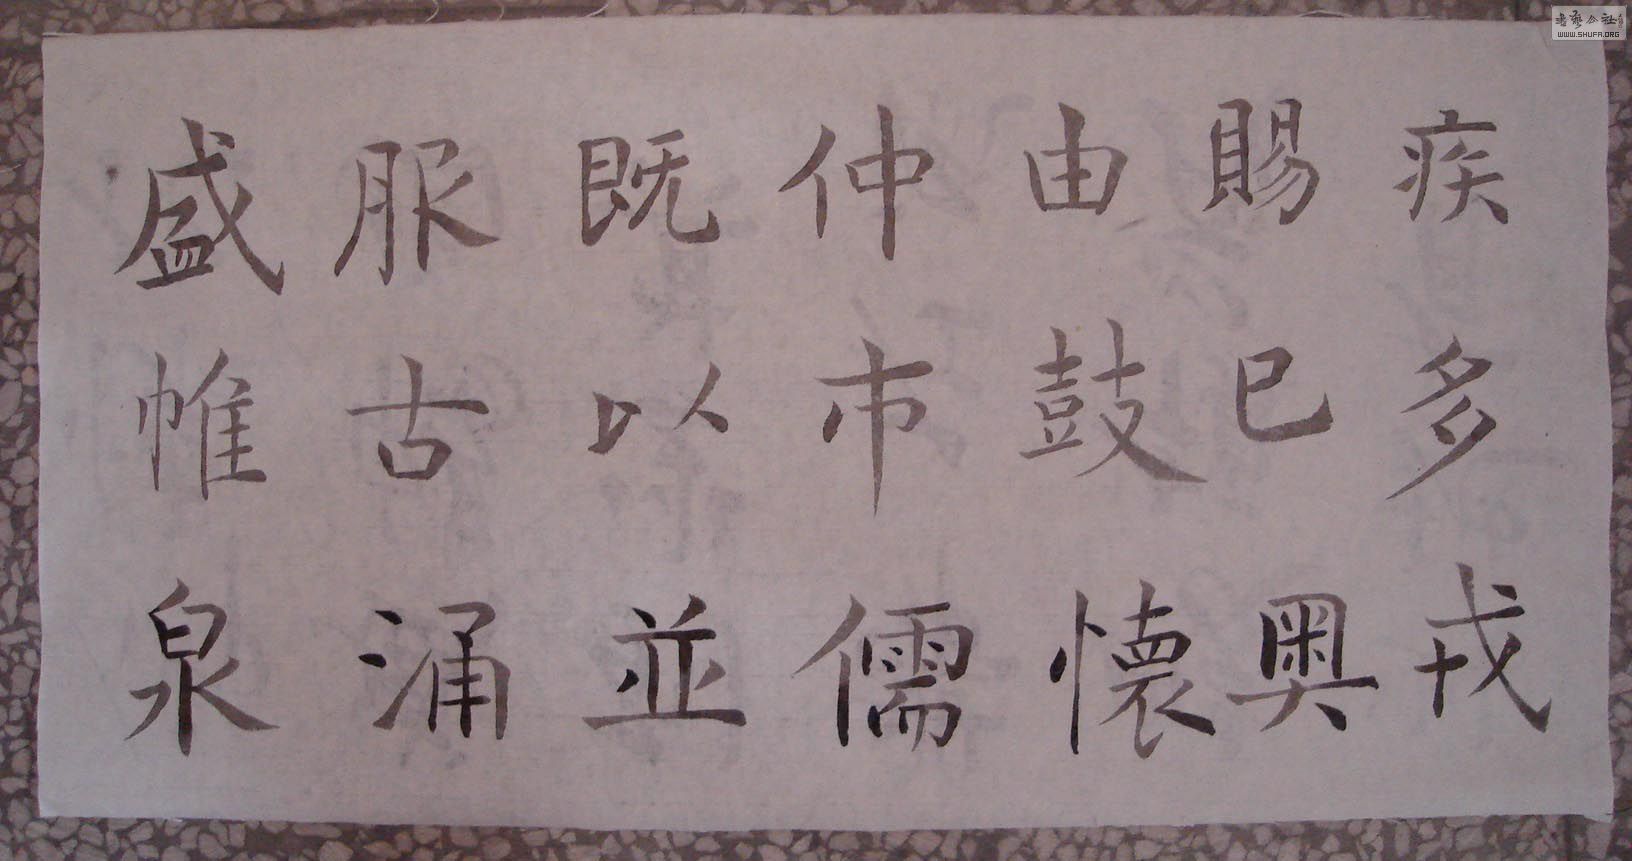 盛服既仲由賜疾
帷古以市鼓已多
泉涌並儒懷奧戎
書藝公社
WWW.SHUFA.ORG